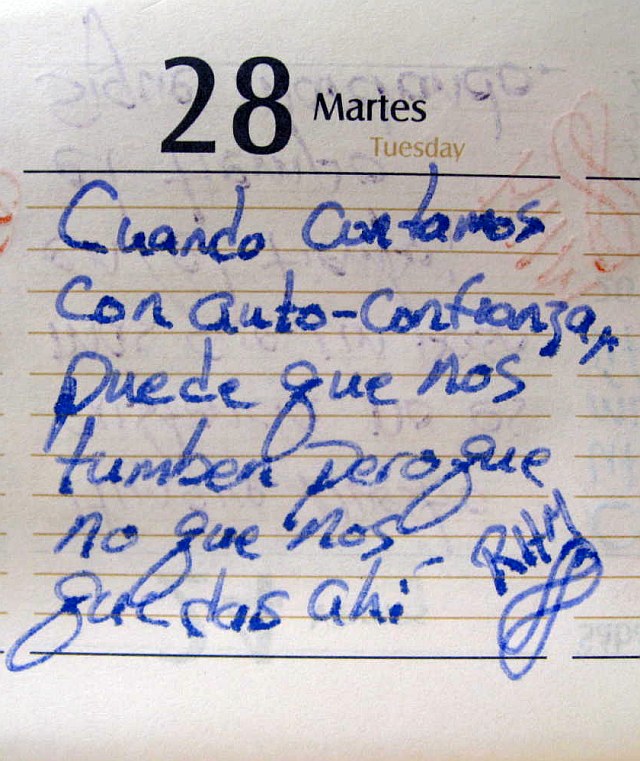 28 Martes
Tuesday
Cuando contamos
con auto-confianza,
puede que nos
tumben pero que
no que nos
quedas ahí
RHM